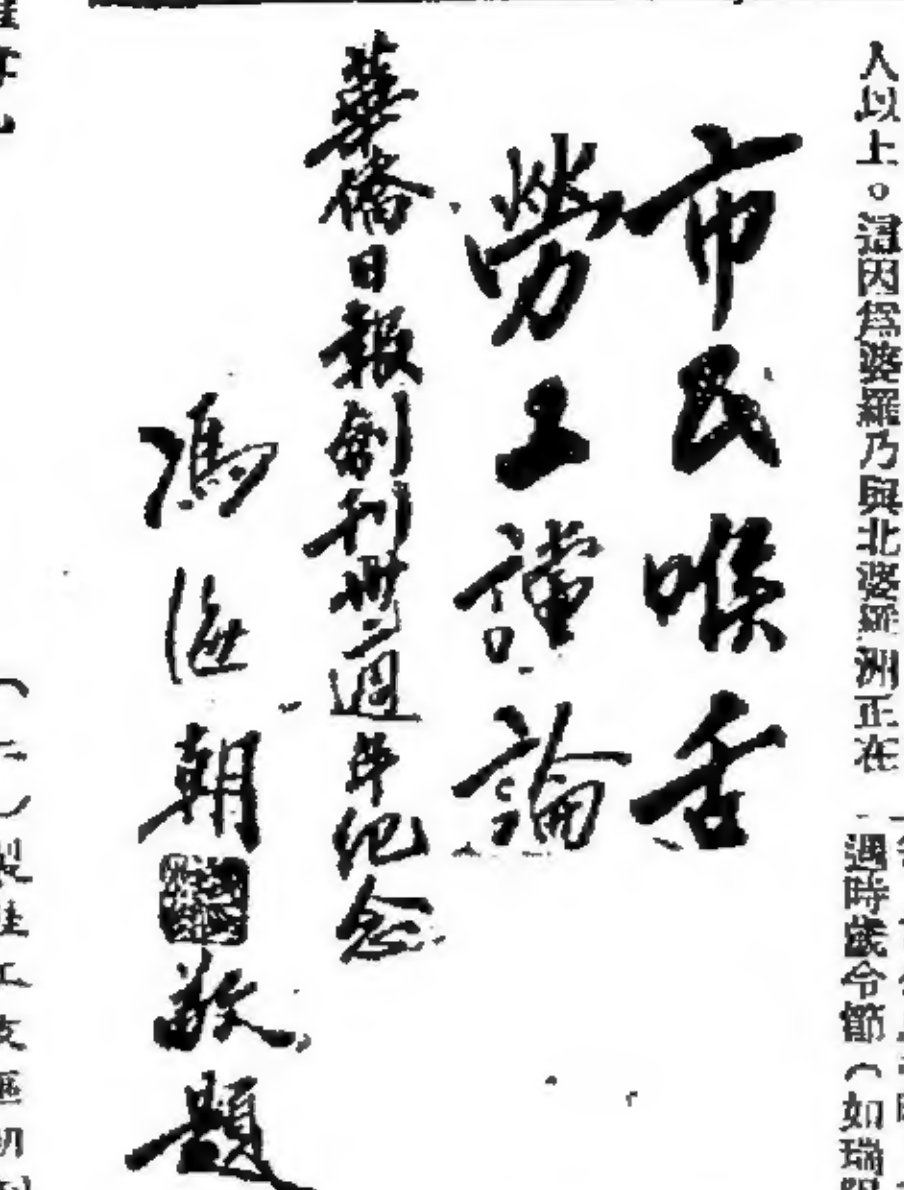 人以上。這因為婆羅乃與北婆羅洲正在
過時歲令節（如瑞
市民喉舌
勞工讜論
華僑日報創刊卅二週年紀念
馮海朝
敬題